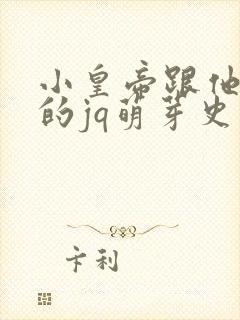 小皇帝跟他
的jq萌芽史
卡利